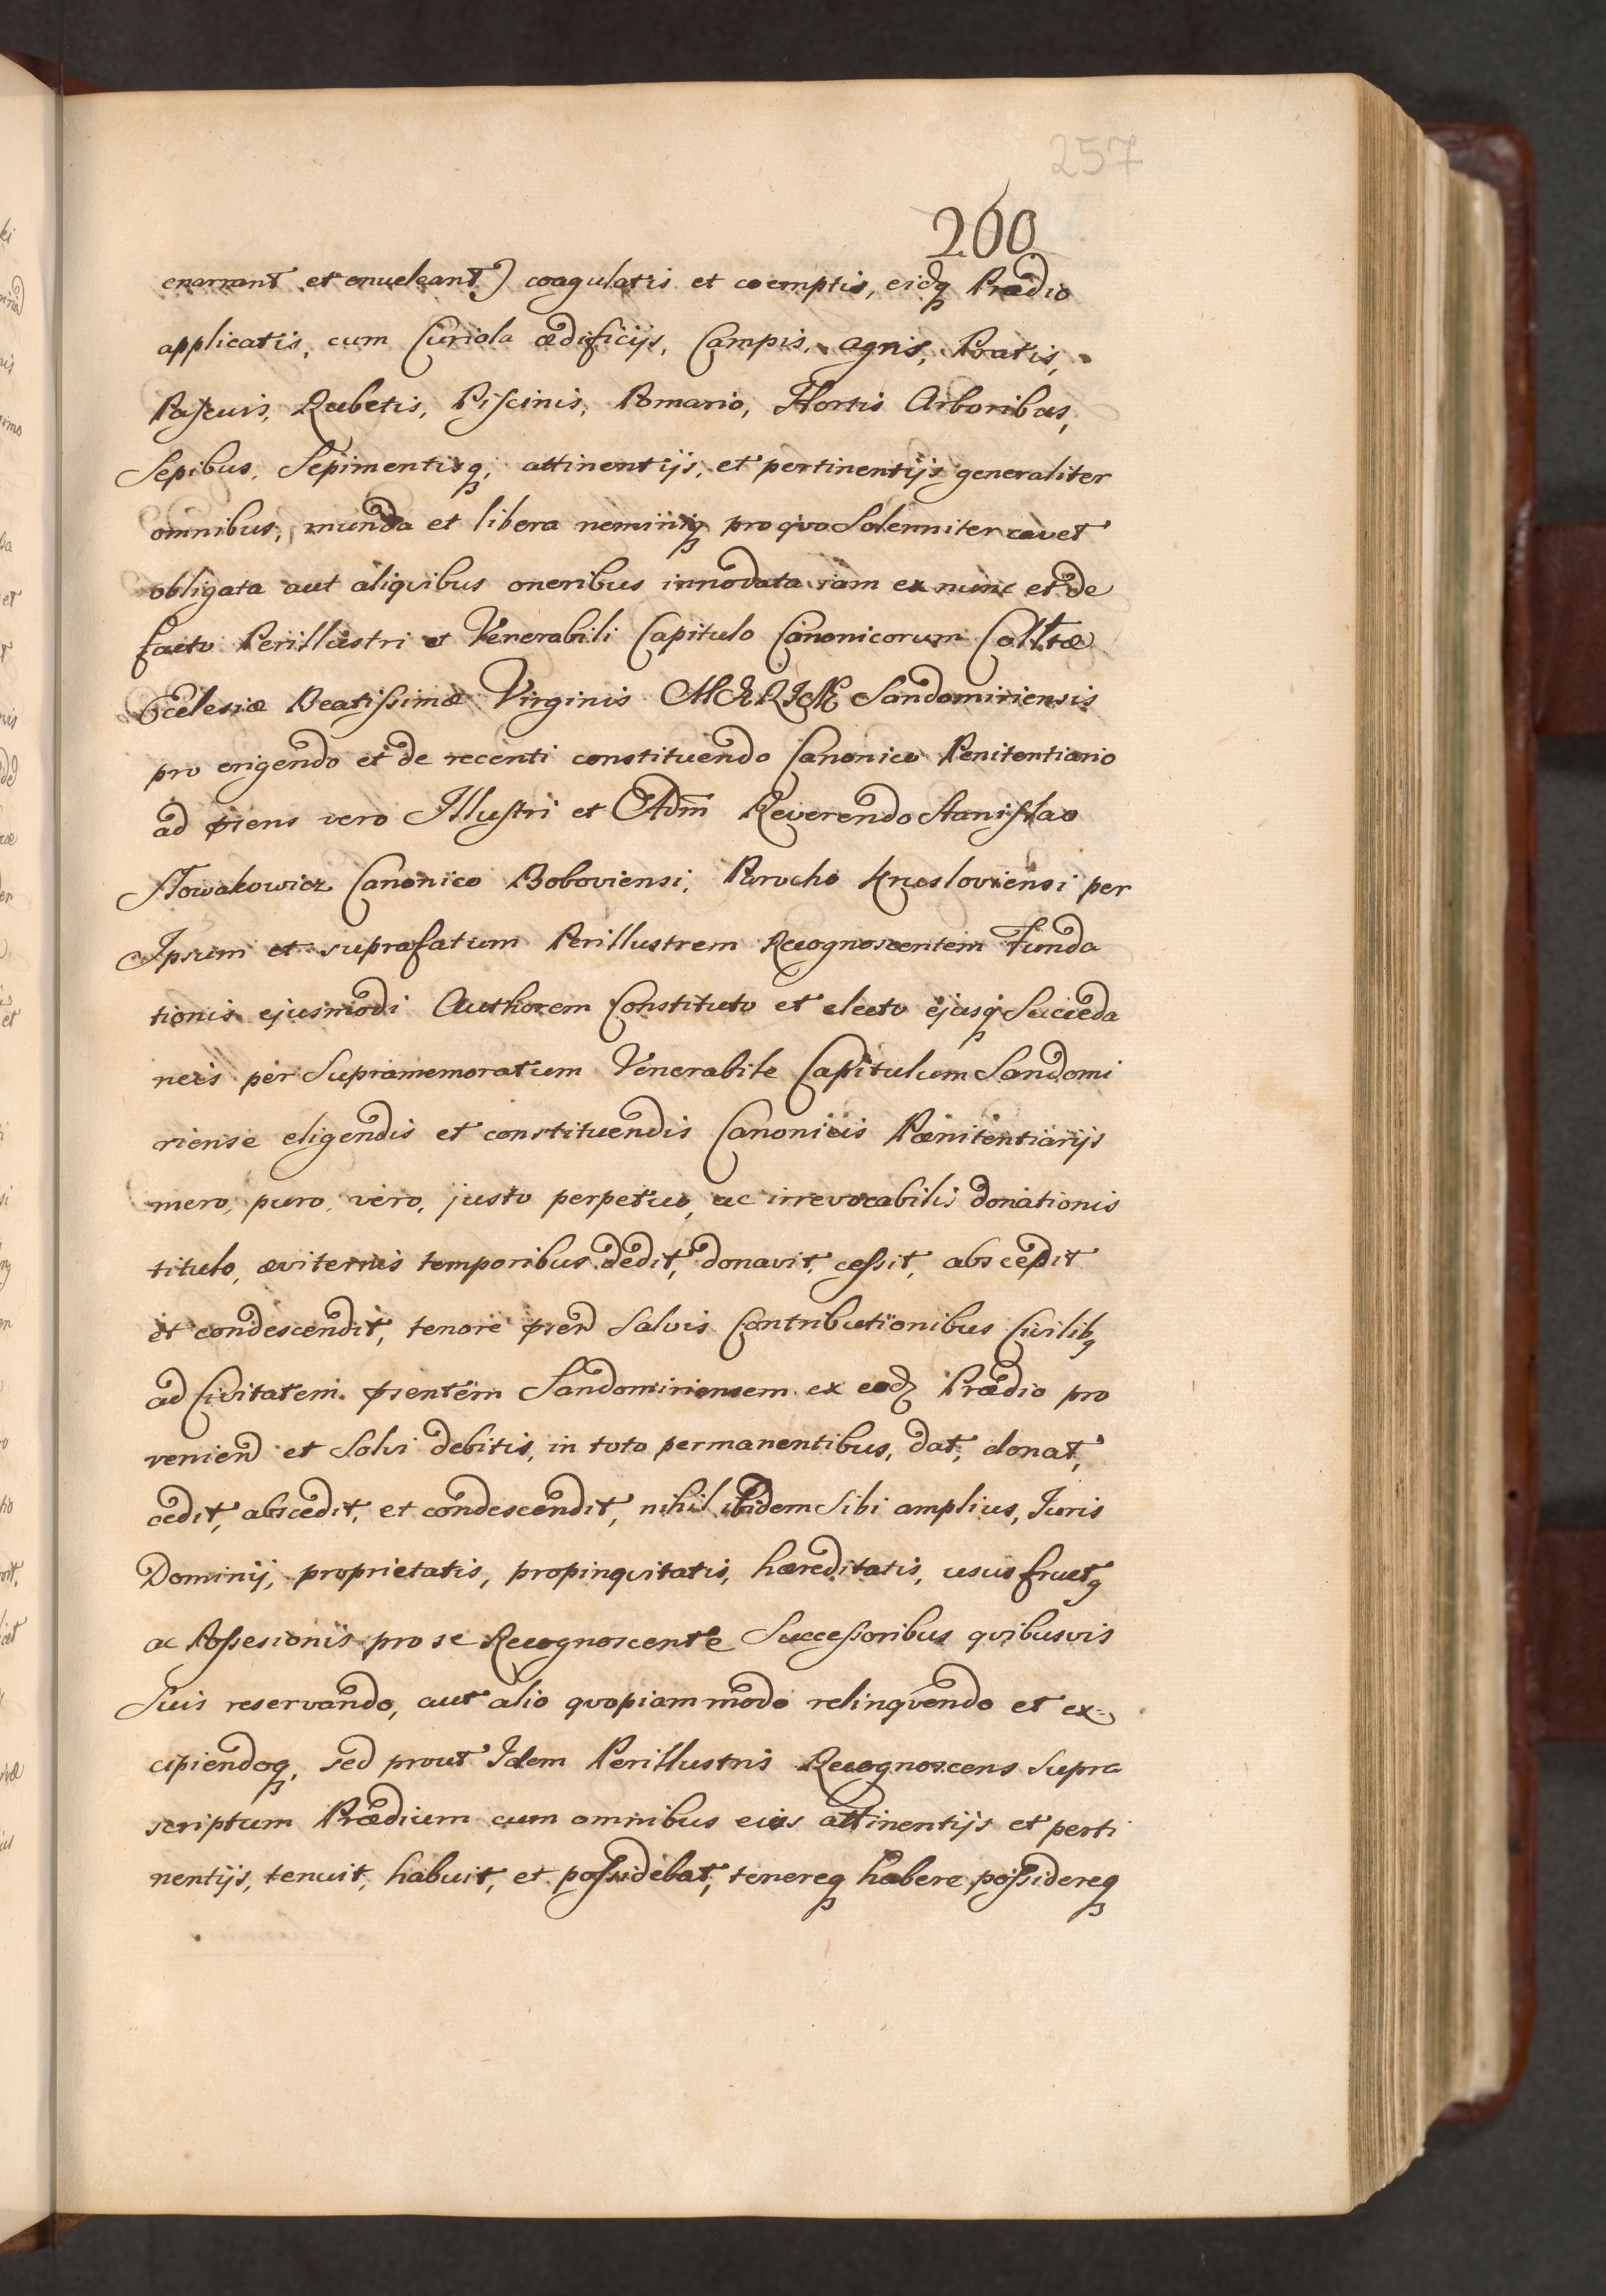 257
260
enarrant et enucleant) coagulatis et coemptis, eidq Prædio
applicatis, cum Curiola ædificijs, Campis, agris, Pratis,
Pascuis, Rubetis, Piscinis, Pomario, Hortis Arboribus,
Sepibus, Sepimentisq, attinentijs, et pertinentijs generaliter
omnibus, munda et libera neminiq pro qvo Solenniter cavet
obligata aut aliqvibus oneribus innodata iam ex nunc et de
facto Perillustri et Venerabili Capitulo Canonicorum Colltæ
Ecclesiæ Beatissimæ Virginis MARIÆ Sandomiriensis
pro erigendo et de recenti constituendo Canonico Penitentiario
ad pñens vero Illustri et Adm̃ Reverendo Stanislao
Nowakowicz Canonico Boboviensi, Parocho Krzesloviensi per
Ipsum et suprafatum Perillustrem Recognoscentem Funda
tionis ejusmodi Authorem Constituto et electo ejusq Succeda
neis per Supramemoratum Venerabile Capitulum Sandomi
riense eligendis et constituendis Canonicis Pænitentiarijs
mero, puro, vero, justo perpetuo, ac irrevocabilis donationis
titulo, æviternis temporibus dedit, donavit, cessit, abscedit
et condescendit, tenore pñen Salvis Contributionibus Civilibq
ad Civitatem pñentem Sandomiriensem ex eodq Prædio pro
venien et Solvi debitis, in toto permanentibus, dat, donat,
cedit, abscedit, et condescendit, nihil ibidem Sibi amplius, Juris
Dominij, proprietatis, propinqvitatis, hæreditatis, usus fructq
ac Possesionis pro se Recognoscente Successoribus qvibusvis
Suis reservando, aut alio qvopiam modo relinqvendo et ex-
cipiendoq, sed prout Idem Perillustris Recognoscens Supra
scriptum Prædium cum omnibus eius attinentijs et perti
nentijs, tenuit, habuit, et possidebat, tenereq habere possidereq